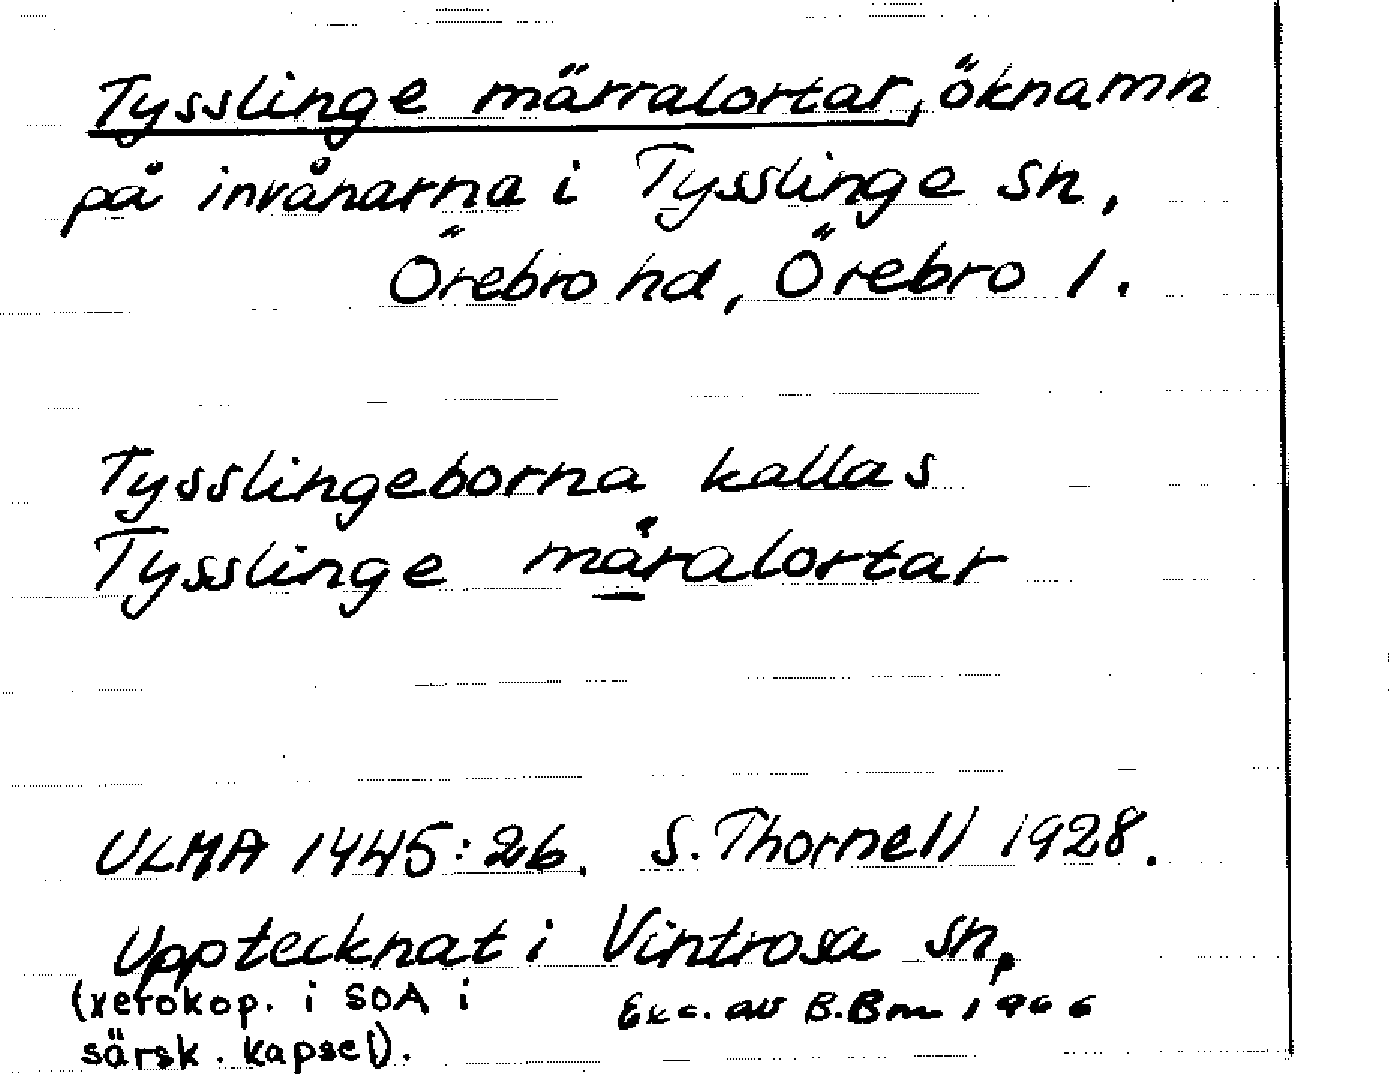 Tysslinge märralortar, öknamn
på invånarna i Tysslinge sn,
Örebro hd, Örebro l.
Tysslingeborna kallas
Tysslinge måralortar
ULMA 1445:26. S. Thornell 1928.
Upptecknat i Vintrosa sn,
(xerokop. i SOA i
särsk. kapsel).
Exc. av B.Bm 1966